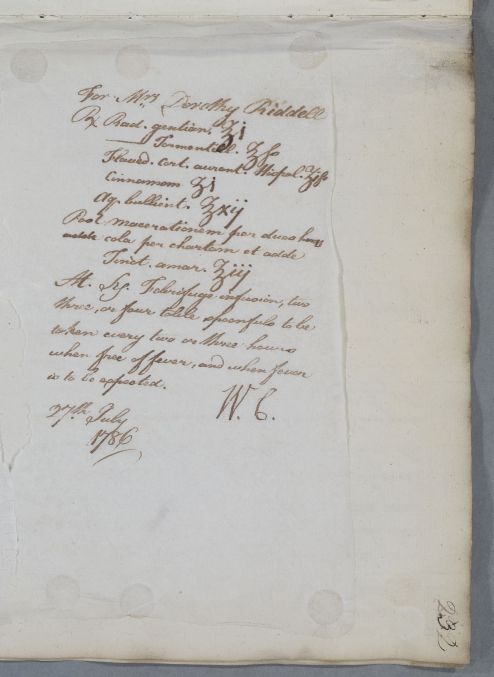 For Mrs Dorothy Riddell
℞ Rad. gentian. ʒi
—— Tormentill. ʒſs
Flaved. cort. aurant. Hispal. ʒiſs
Cinnamom ʒi
Aq. bullient. ℥xij
Post macerationem per duas horas
cola per chartam et adde
Tinct. amar. ℥ij
M. Sig. Febrifuge infusion, two
three, or four table spoonfuls to be
taken every two or three hours
when free of fever, and when fever
is to be expected.
W. C.
27th July
1786
232